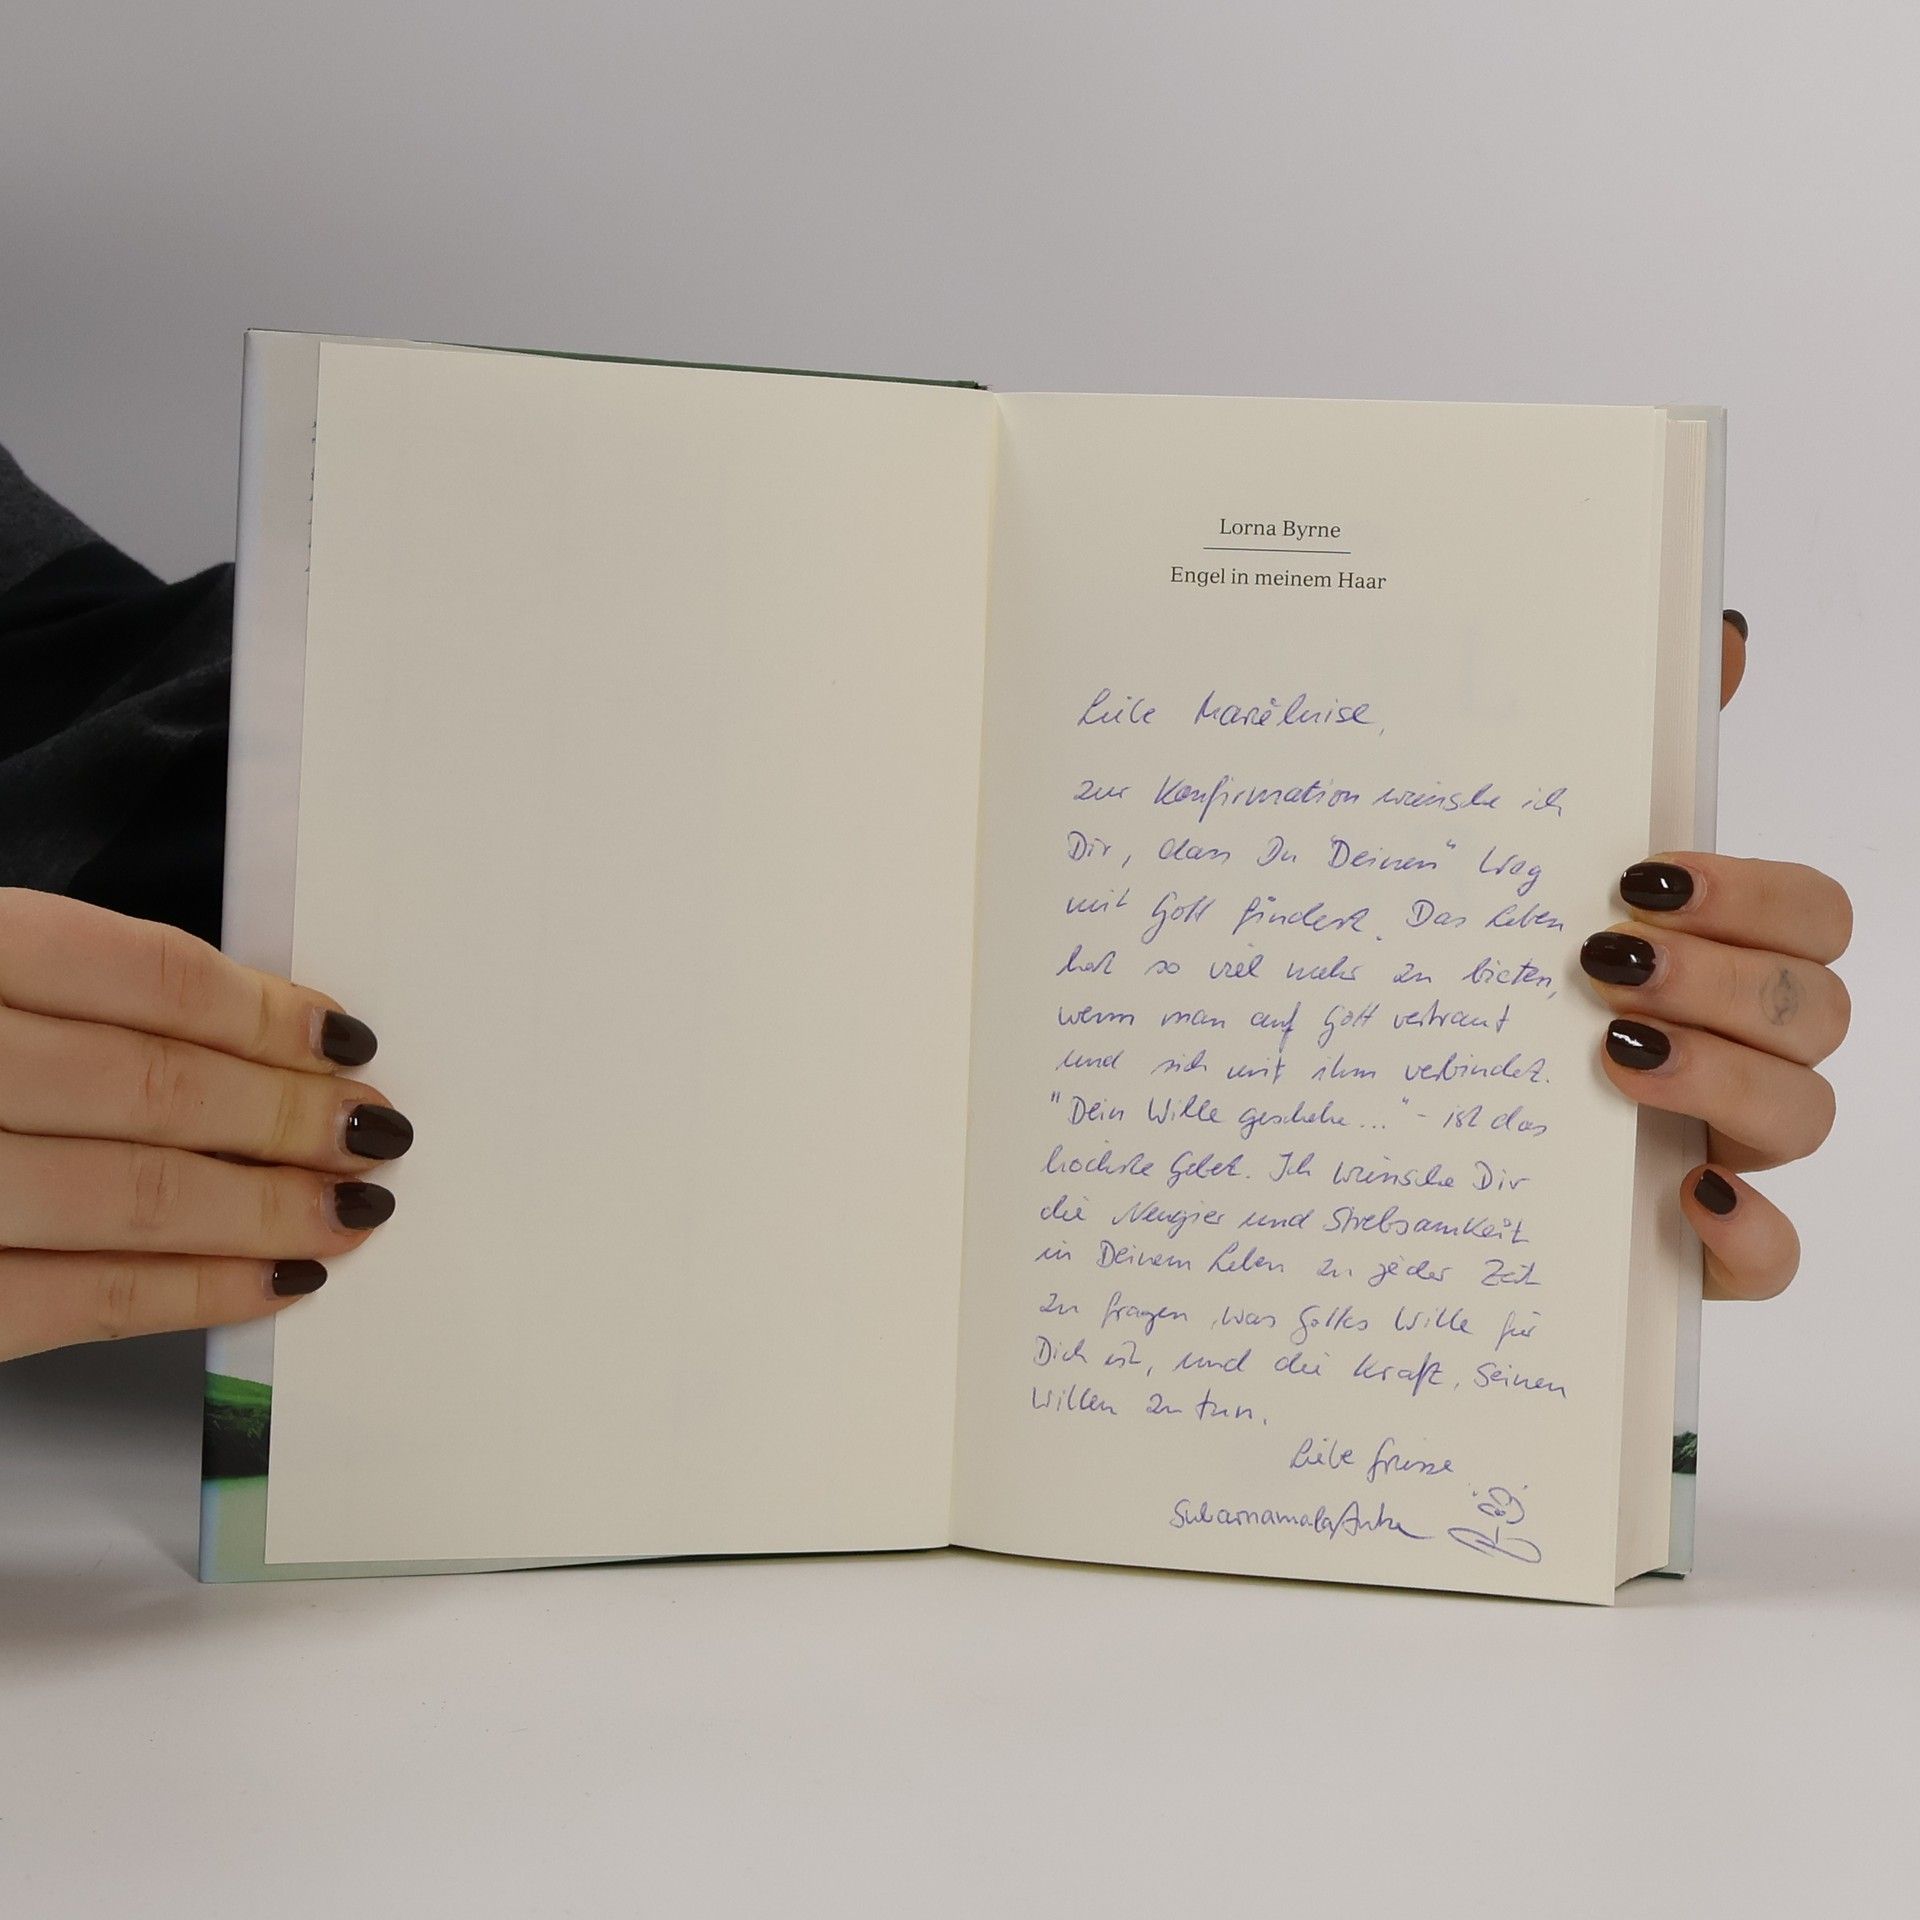 Lorna Byrne
Engel in meinem Haar
Liebe Marieluise,
zur Konfirmation wünsche ich
Dir, dass Du "Deinen" Weg
mit Gott findest. Das Leben
hat so viel mehr zu bieten,
wenn man auf Gott vertraut
und sich mit ihm verbindet.
"Dein Wille geschehe..." - ist das
höchste Gebet. Ich wünsche Dir
die Neugier und Strebsamkeit
in Deinem Leben zu jeder Zeit
zu fragen, was Gottes Wille für
Dich ist, und die Kraft, Seinen
Willen zu tun.
Liebe Grüsse
Subarnamala/Anke